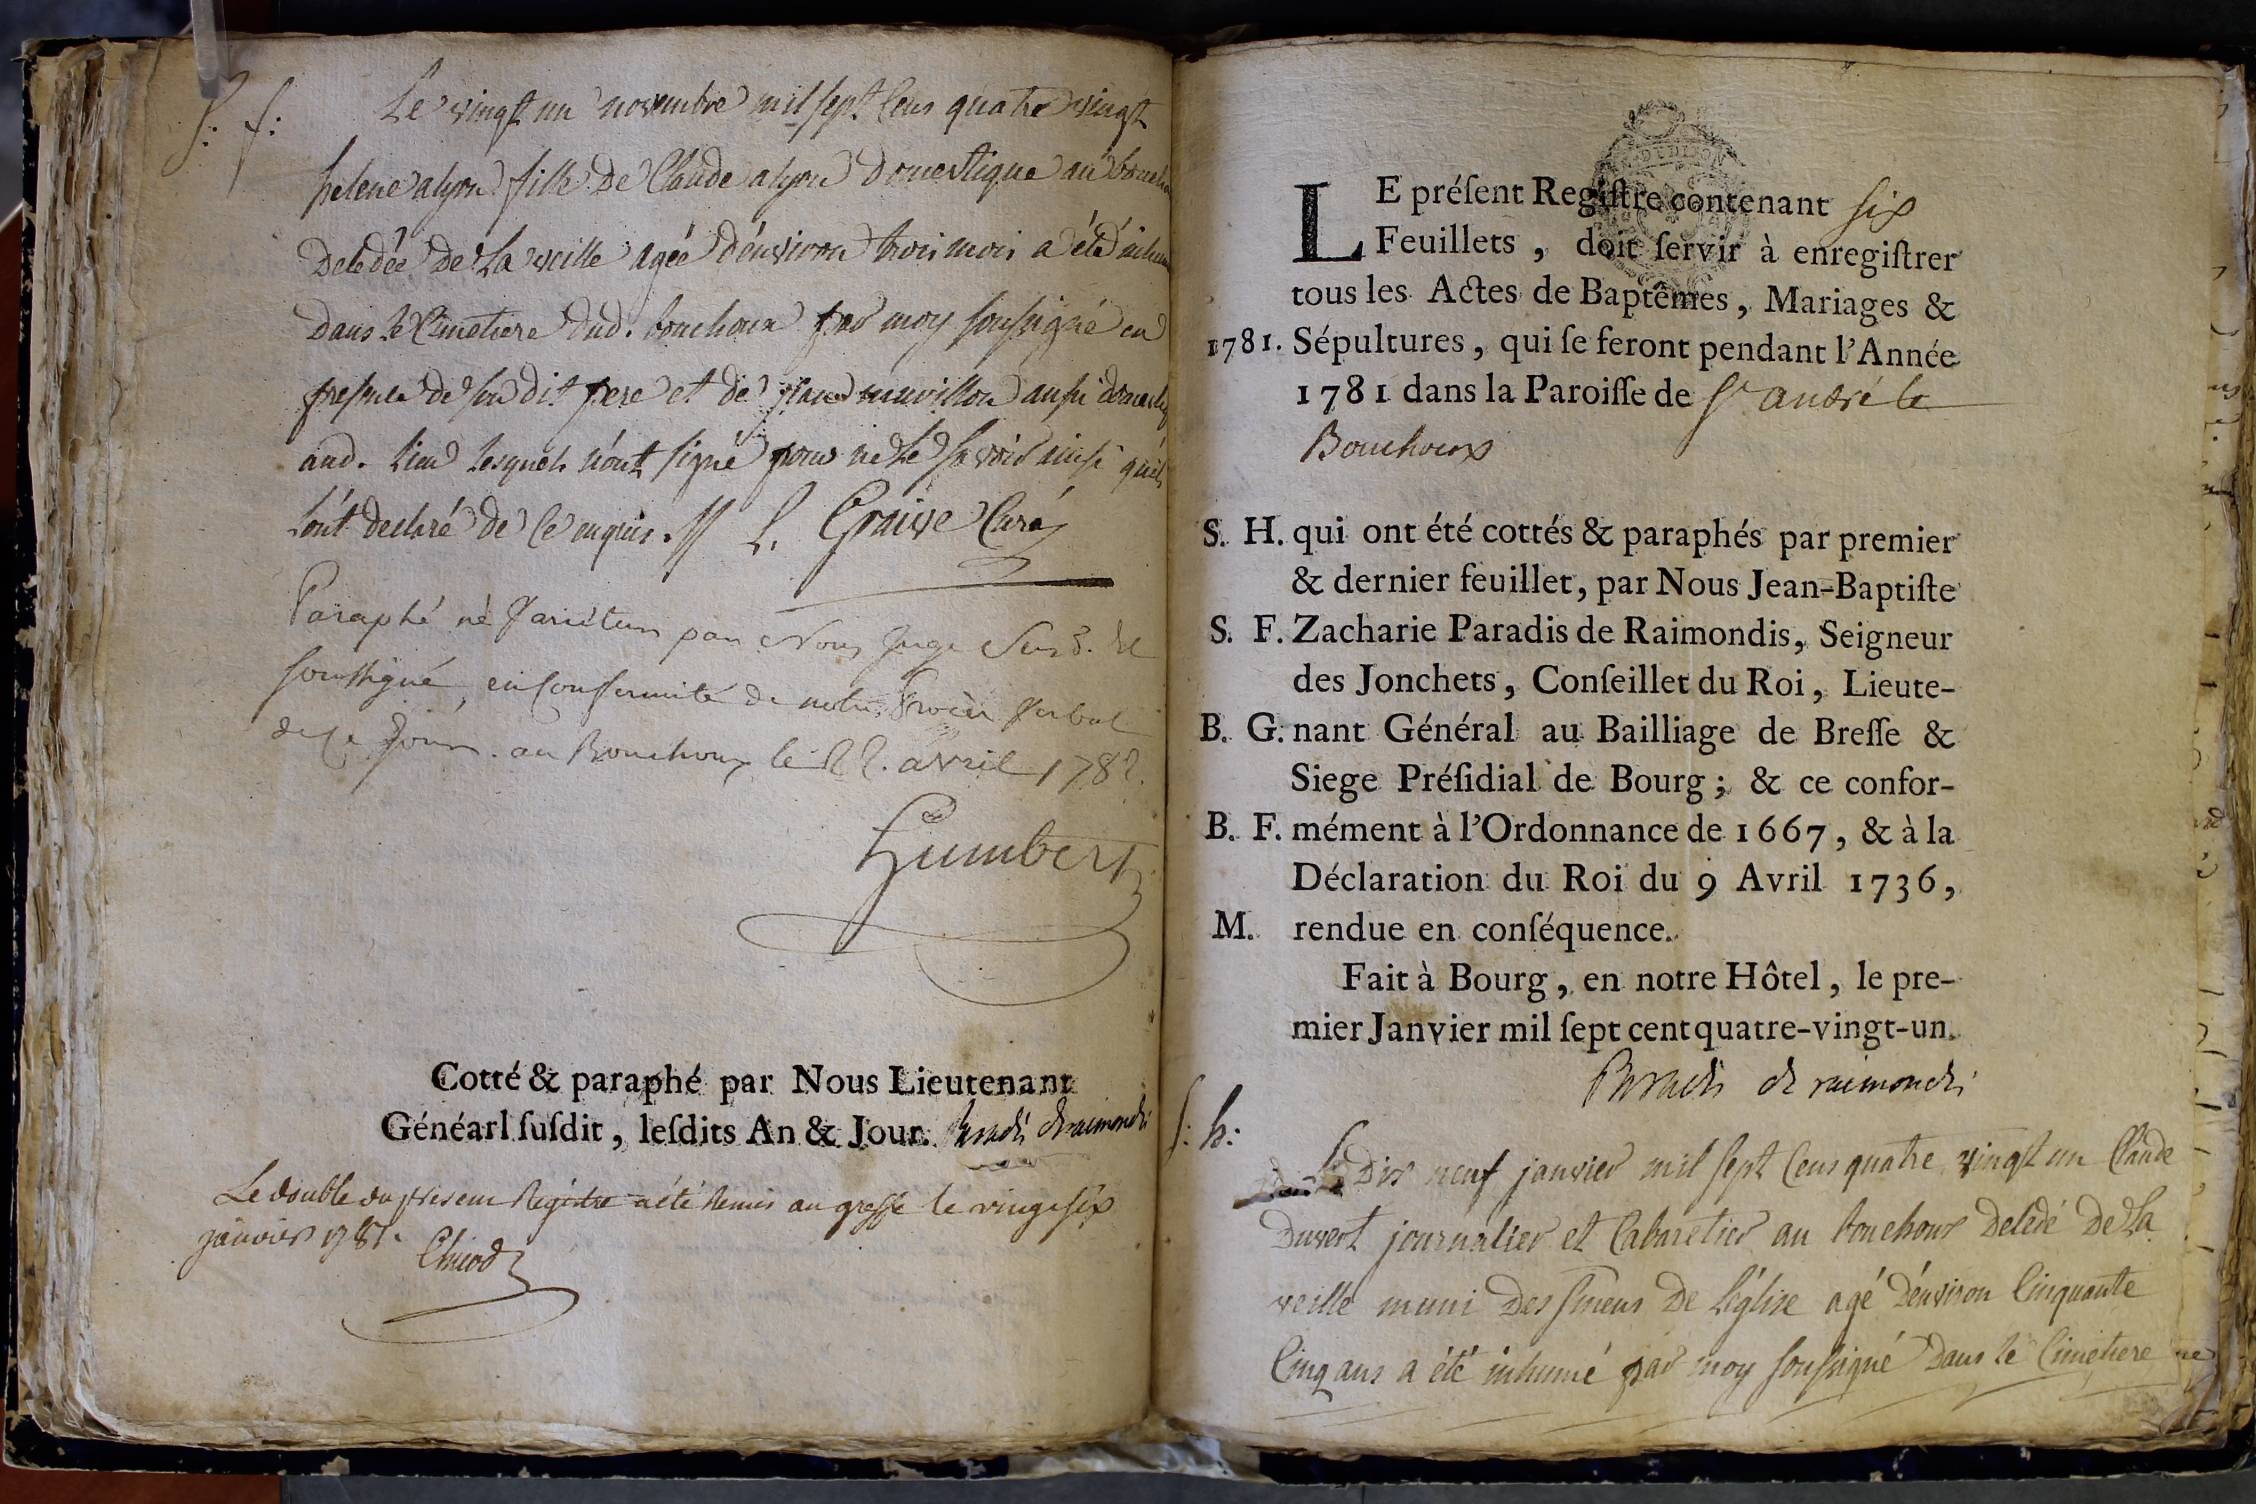 S: f:
Le vingt un novembre mil sept Cens quatre vingt
helene alyon fille De Claude alyon Domestique au
Delcdée De La veille agée D'environ trois mois a été
Dans le Cimetiere dud. bouchoux par moy soussigné en
presence de son dit pere et de mavillon aussi
aud. Lieu Lesquels n'ont signé pour ne Le savoir ainsi qu'ils
L'ont declaré de Ce enquis. // L. Graive Curé
Paraphé né varietur par Nous Juge
soussigné, en conformité de notre Procès Verbal
de ce Jour. au Bouchoux le 22. avril 1782.
Humbert
Cotté & paraphé par Nous Lieutenant
Généarl ſuſdit, leſdits An & Jour. Paradis deraimondis
Le double du present Registre a été Remis au greffe le vingt six
janvier 1781.
LE préſent Regiſtre contenant six
Feuillets, doit ſervir à enregiſtrer
tous les Actes de Baptêmes, Mariages &
1781. Sépultures, qui ſe feront pendant l'Année
1781 dans la Paroiſſe de St andré le
Bouchoux
S. H. qui ont été cottés & paraphés par premier
& dernier feuillet, par Nous Jean-Baptiſte
S. F. Zacharie Paradis de Raimondis, Seigneur
des Jonchets, Conſeillet du Roi, Lieute-
B. G. nant Général au Bailliage de Breſſe &
Siege Préſidial de Bourg; & ce confor-
B. F. mément à l'Ordonnance de 1667, & à la
Déclaration du Roi du 9 Avril 1736,
M. rendue en conſéquence.
Fait à Bourg, en notre Hôtel, le pre-
mier Janvier mil ſept cent quatre-vingt-un.
Paradis de raimondis
S: h:
Le Dix neuf janvier mil sept Cens quatre vingt un Claude
Duvert journalier et Cabaretier au bouchoux Delcdé De La
veille muni Des Smens De L'églize agé D'environ Cinquante
Cinq ans a été inhumé par moy soussigné Dans le Cimetiere